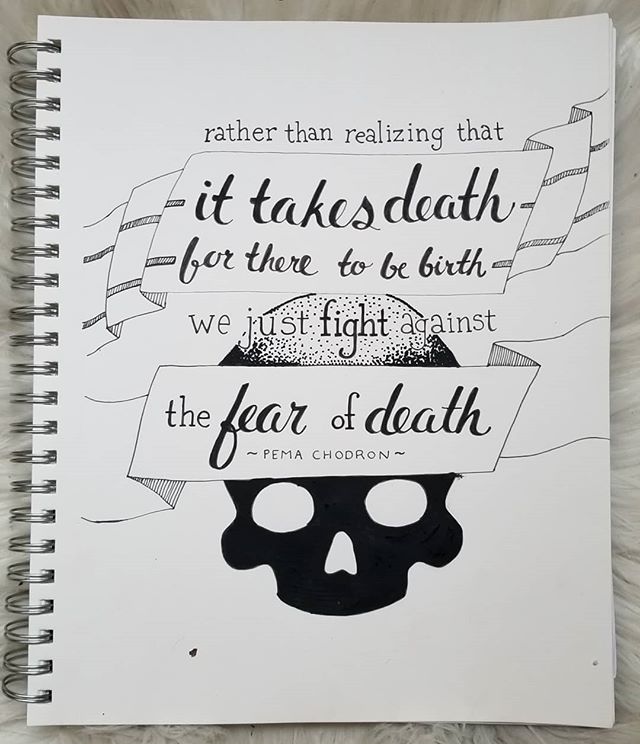 rather than realizing that
it takes death
for there to be birth
we just fight against
the fear of death
~PEMA CHODRON~